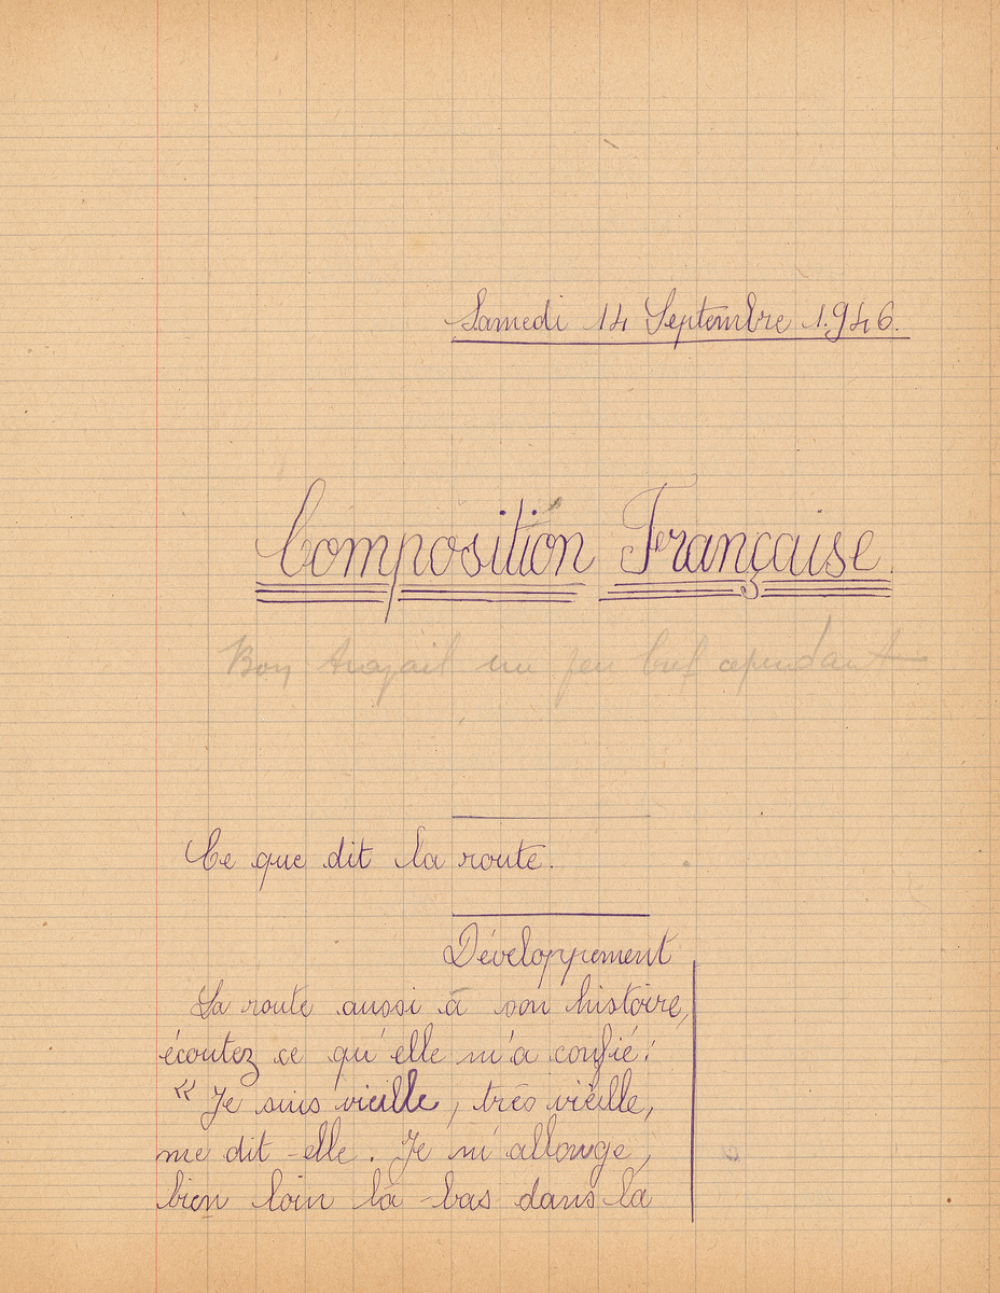 Samedi 14 Septembre 1.946.
Composition Française.
Bon travail un peu bref cependant
Ce que dit la route.
Développement
La route aussi à son histoire,
écoutez ce qu'elle m'a confié:
« Je suis vieille, très vieille,
me dit-elle. Je m'allonge,
bien loin là-bas dans la